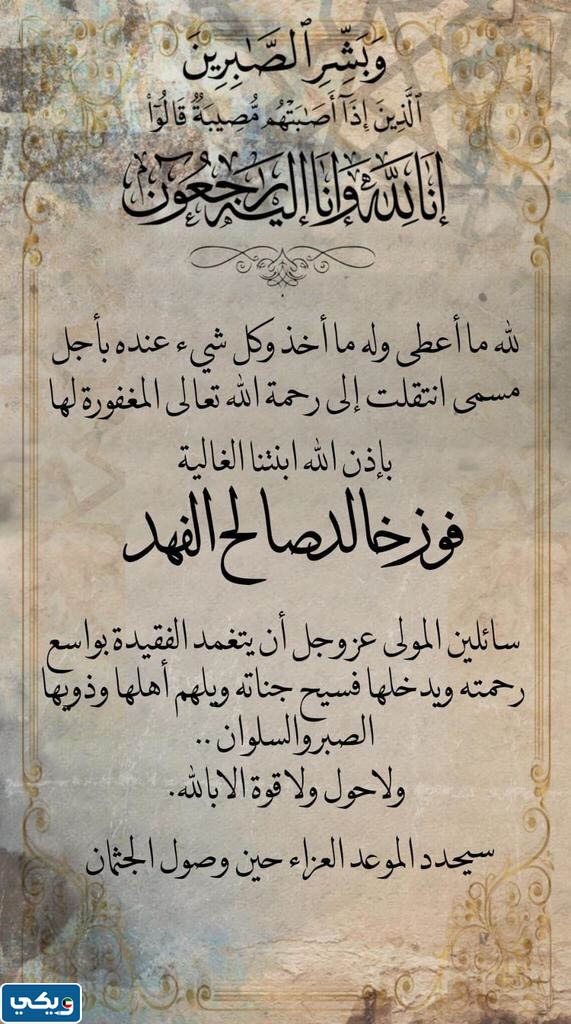 وَبَشِّرِ ٱلصَّـٰبِرِينَ
ٱلَّذِينَ إِذَآ أَصَـٰبَتْهُم مُّصِيبَةٌ قَالُوٓا۟
إنا لله وإنا إليه راجعون
لله ما أعطى وله ما أخذ وكل شيء عنده بأجل
مسمى انتقلت إلى رحمة الله تعالى المغفورة لها
بإذن الله ابنتنا الغالية
فوز خالد صالح الفهد
سائلين المولى عزوجل أن يتغمد الفقيدة بواسع
رحمته ويدخلها فسيح جناته ويلهم أهلها وذويها
الصبر والسلوان ..
ولاحول ولا قوة الا بالله.
سيحدد الموعد العزاء حين وصول الجثمان
ويكي